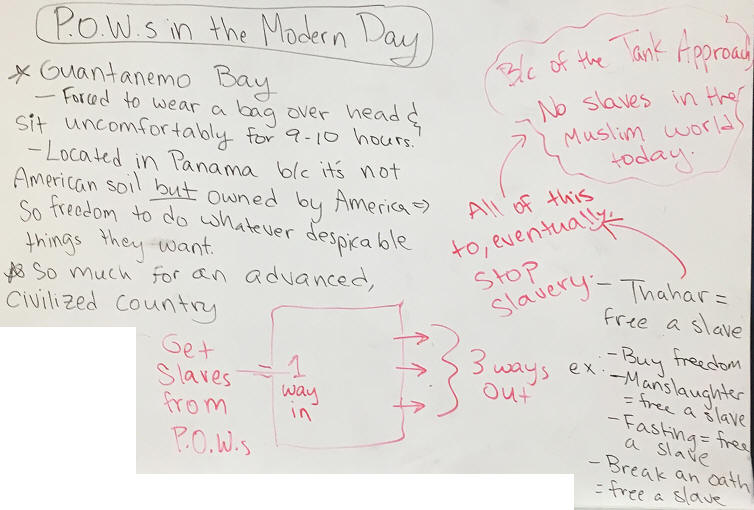 P.O.W.s in the Modern Day
* Guantanemo Bay
- Forced to wear a bag over head &
sit uncomfortably for 9-10 hours.
- Located in Panama b/c it's not
American soil but owned by America ⇒
So freedom to do whatever despicable
things they want.
* So much for an advanced,
Civilized country
B/c of the Tank Approach
- No slaves in the
Muslim world
today.
All of this
to, eventually,
STOP
Slavery.
- Thahar =
free a slave
Get
Slaves
from
P.O.W.s
= 1
way
in
3 ways
out
ex:
- Buy freedom
- Manslaughter
= free a slave
- Fasting = free
a slave
- Break an oath
= free a slave